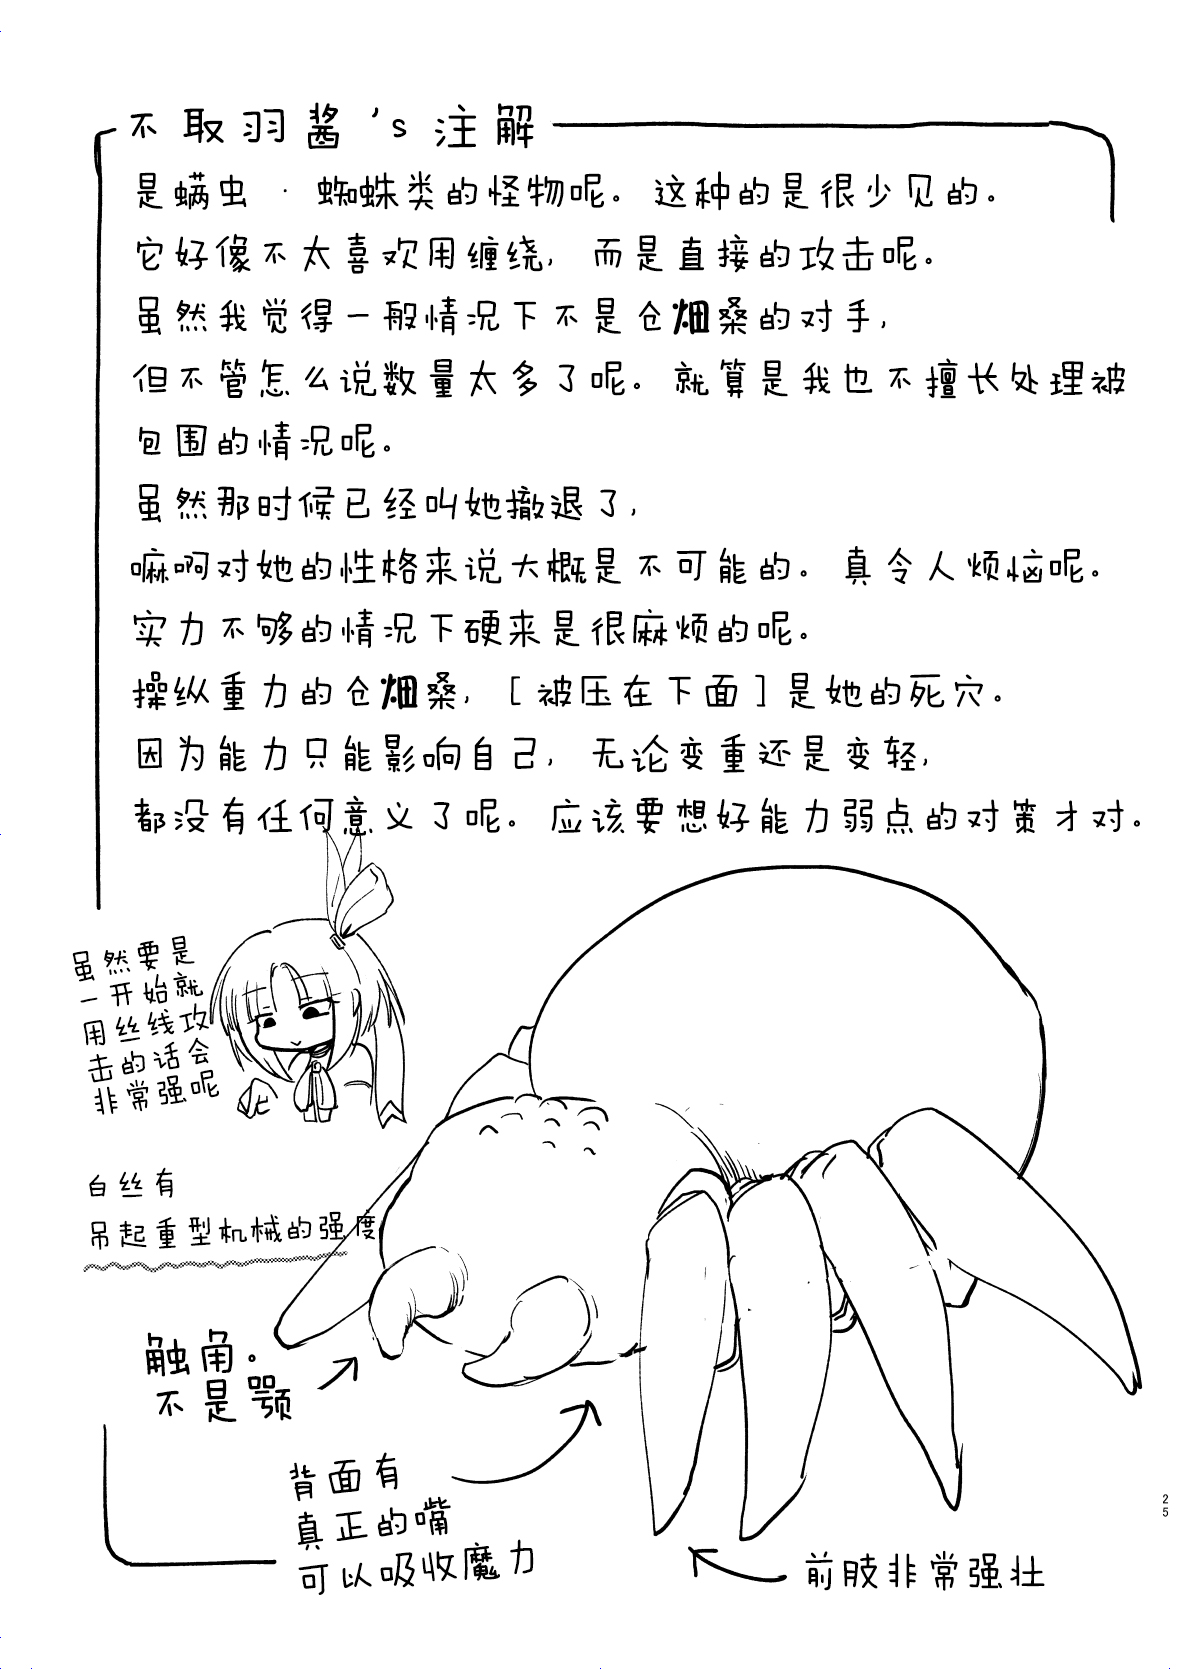 不取羽酱's注解
是螨虫·蜘蛛类的怪物呢。这种的是很少见的。
它好像不太喜欢用缠绕,而是直接的攻击呢。
虽然我觉得一般情况下不是仓畑桑的对手,
但不管怎么说数量太多了呢。就算是我也不擅长处理被
包围的情况呢。
虽然那时候已经叫她撤退了,
嘛啊对她的性格来说大概是不可能的。真令人烦恼呢。
实力不够的情况下硬来是很麻烦的呢。
操纵重力的仓畑桑,[被压在下面]是她的死穴。
因为能力只能影响自己,无论变重还是变轻,
都没有任何意义了呢。应该要想好能力弱点的对策才对。
虽然要是
一开始就
用丝线攻
击的话会
非常强呢
白丝有
吊起重型机械的强度
触角。
不是颚
背面有
真正的嘴
可以吸收魔力
前肢非常强壮
25